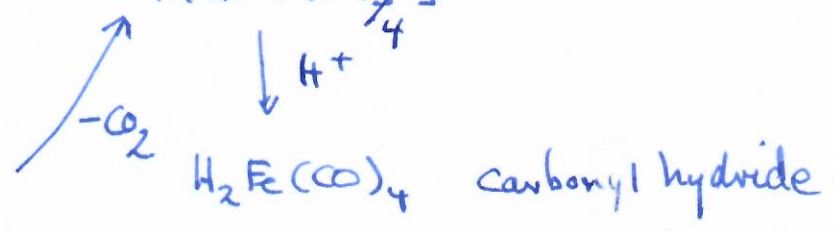 4
H⁺
-CO₂
H₂Fe(CO)₄ carbonyl hydride